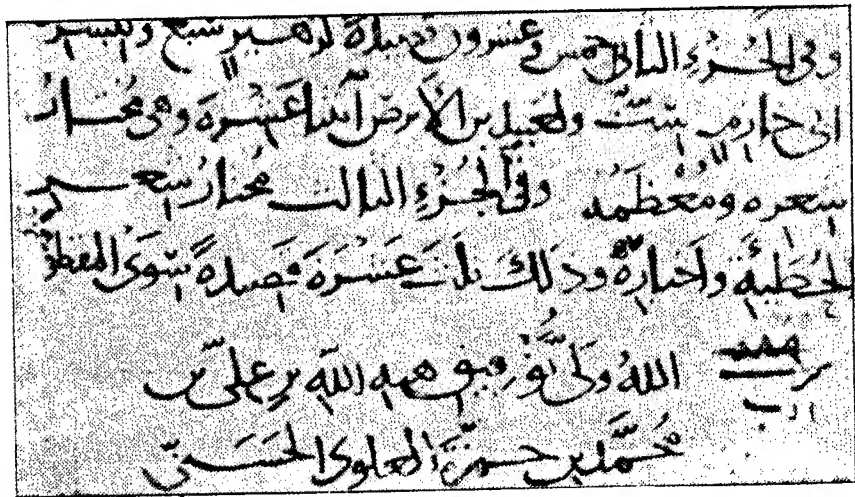 وفى الجزء الثانى خمس وعشرون قصيدة لزهير سبع ولبشر
ابى خازم ست ولعبيد بن الأبرص اثنتا عشرة وهى مختار
شعره ومعظمه وفى الجزء الثالث مختار شعر
الحطيئة وأخباره وذلك ثلث عشرة قصيدة سوى المقطو
الله ولى توفيق هبه الله بن على بن
محمد بن حمزة العلوى الحسنى